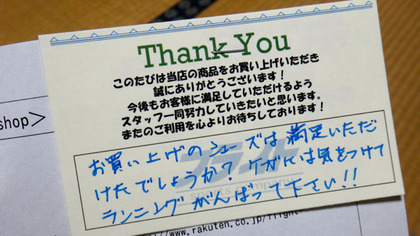 Thank You
このたびは当店の商品をお買い上げいただき
誠にありがとうございます！
今後もお客様に満足していただけるよう
スタッフ一同努力していきたいと思います。
またのご利用を心よりお待ちしております！
shop＞
お買い上げのシューズは満足いただ
けたでしょうか？ケガには気をつけて
ランニングがんばって下さい!!
www.rakuten.co.jp/